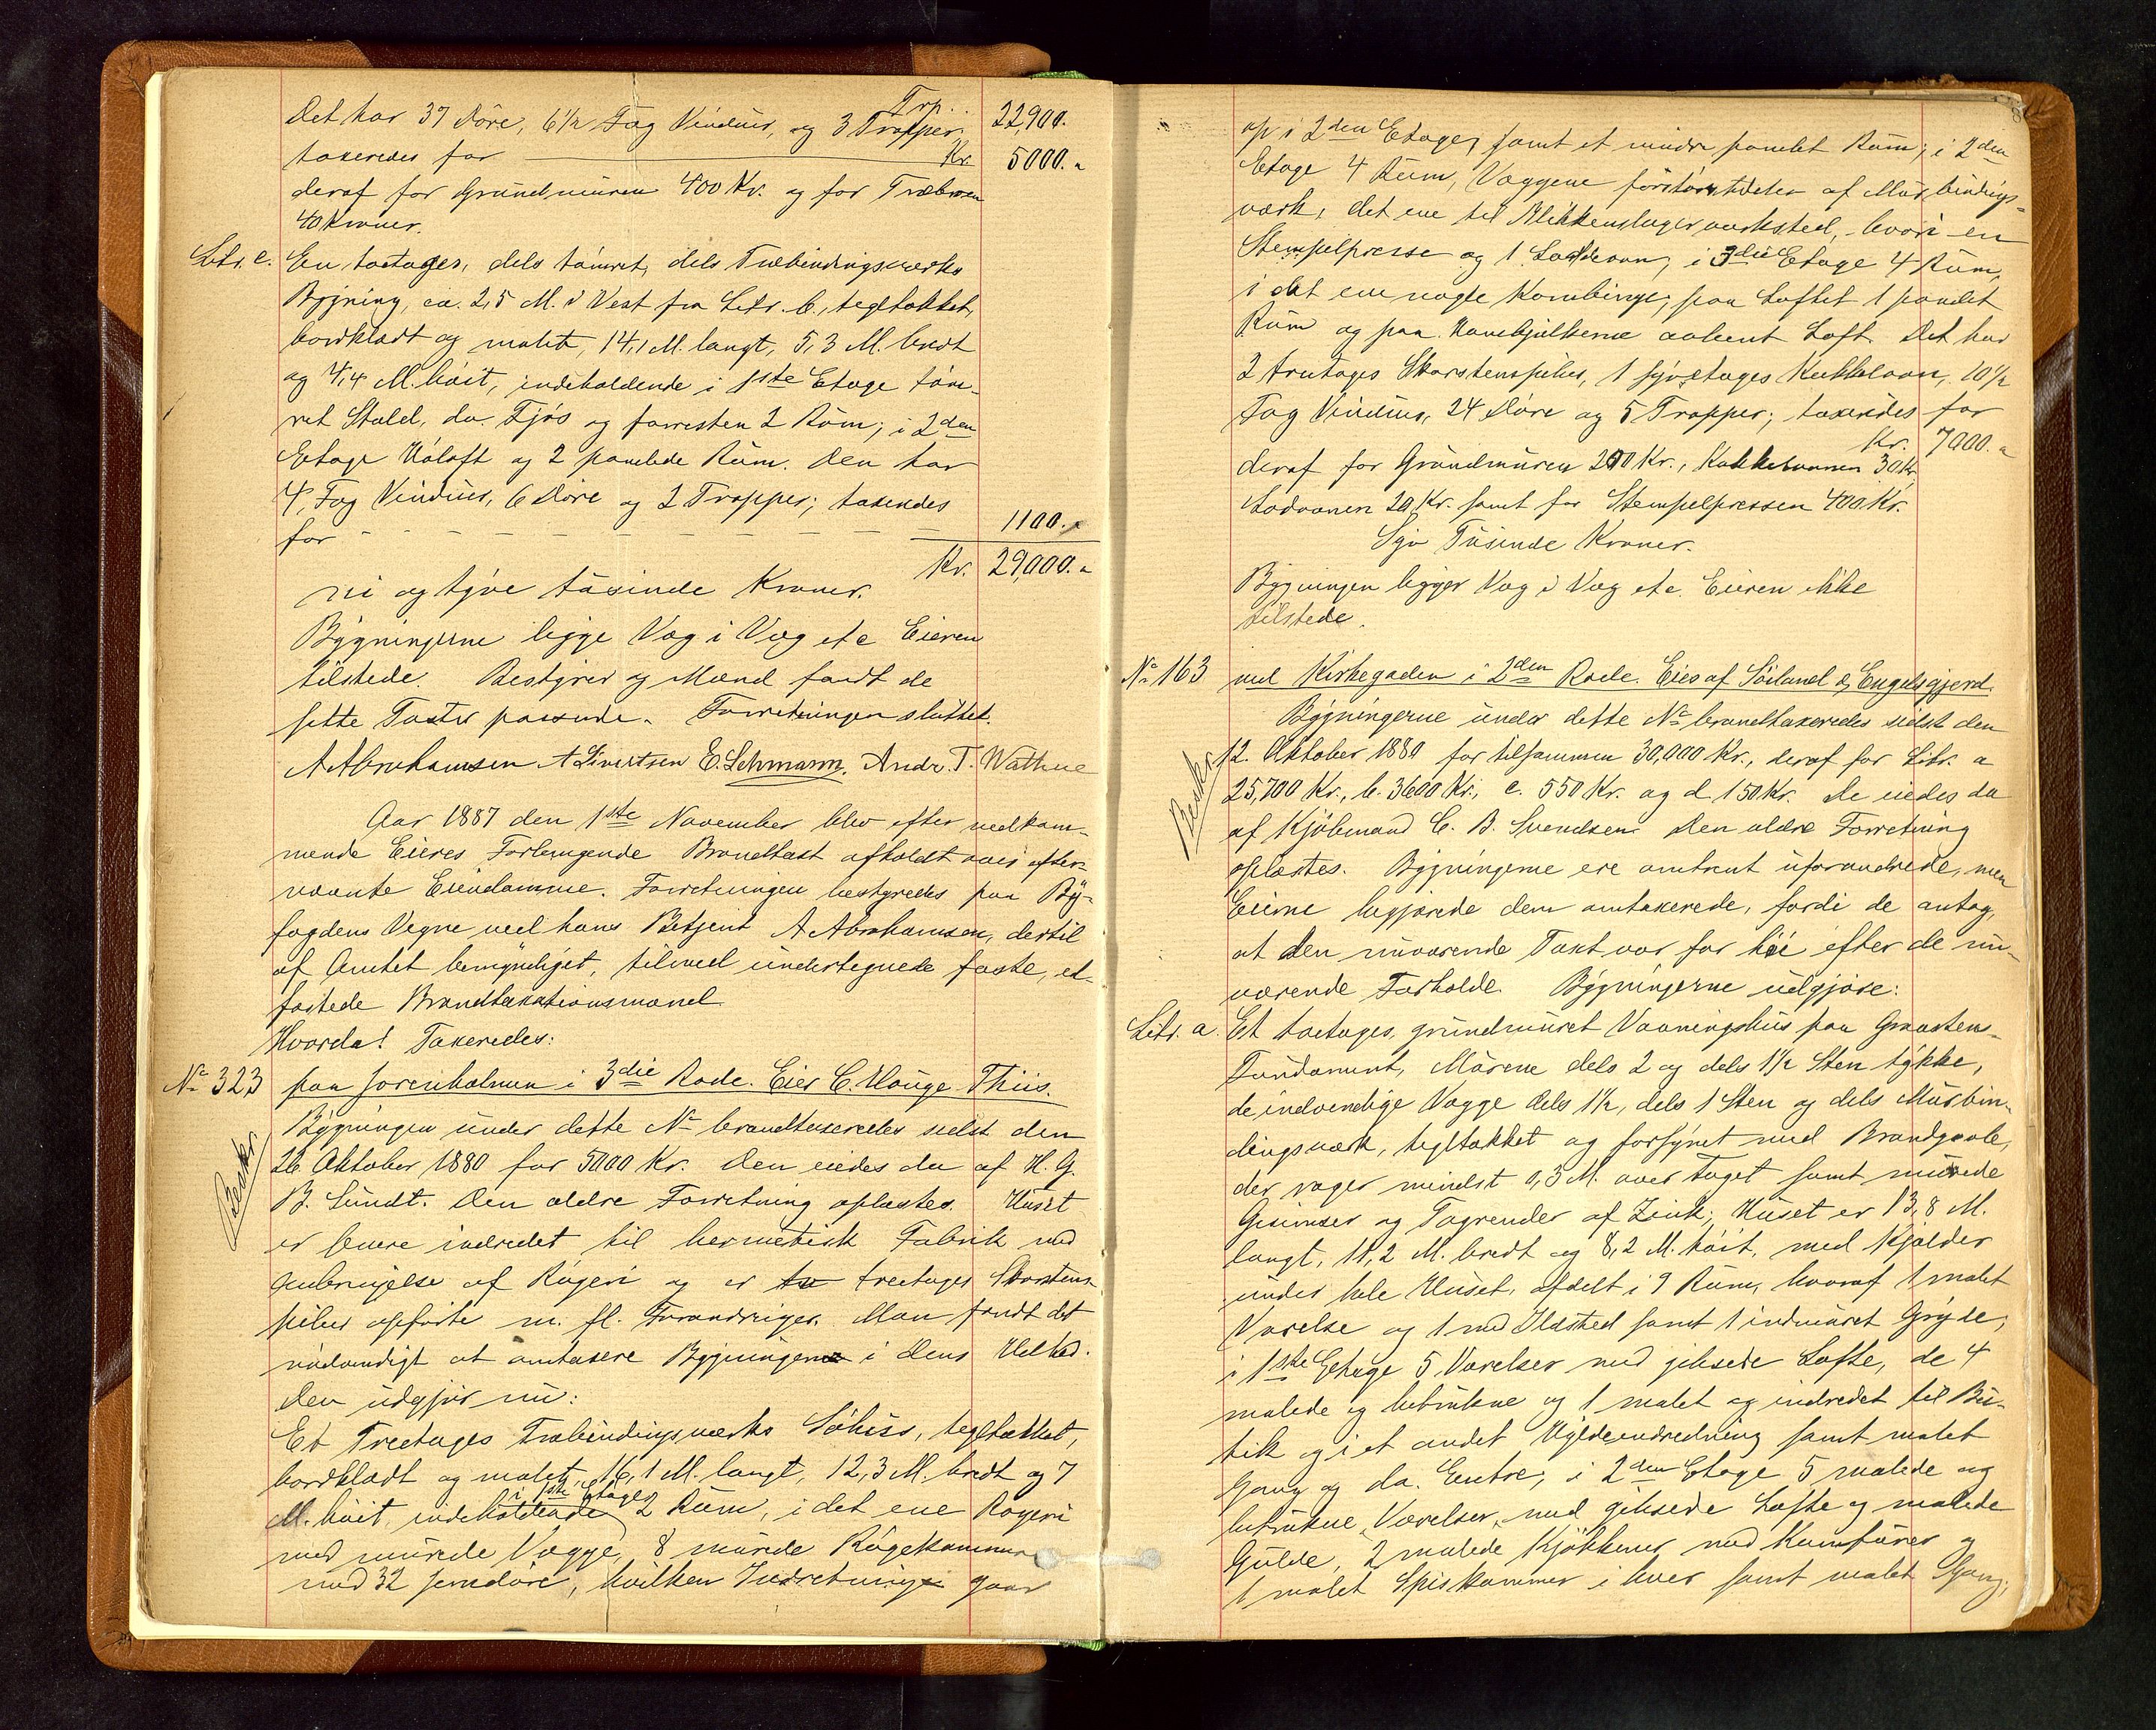 Trp. 22,900.
Det har 37 Döre, 6 1/2 Fag Vinduer, og 3 Trapper.
taxeredes for Kr. 5000.
deraf for Grundmuren 400 Kr. og for
40 Kroner.
Litr. c. En toetages, dels tömret, dels Træbindingsværks
Bygning, ca. 2,5 M. i Vest fra Litr. b., tegltækket,
bordklædt og malet, 14,1 M. langt, 5,3 M. bredt
og 4,4 M. höit, indeholdende i 1ste Etage töm-
ret Stald, do. Fjös og forresten 2 Rum; i 2den
Etage Höloft og 2 panelede Rum. Den har
4 Fag Vinduer, 6 Döre og 2 Trapper; taxeredes
for 1100.
Kr. 29,000.
ni og tyve tusinde Kroner.
Bygningerne ligge Væg i Væg etc Eieren
tilstede. Bestyrer og Mænd fandt de
satte Taxter passende. Forretningen sluttet.
A Abrahamsen A Sivertsen E. Lehmann. Andr. T. Wathne
Aar 1887 den 1ste November blev efter vedkom-
mende Eieres Forlangende Brandtaxt afholdt over efter-
nævnte Eiendomme. Forretningen bestyredes paa By-
fogdens Vegne ved hans Betjent A Abrahamsen, dertil
af Amtet bemyndiget, tilmed undertegnede faste, ed-
fæstede Brandtaxationsmænd.
Hvorda! Taxeredes:
No 323 paa Jorenholmen i 3die Rode. Eier C. Houge Thiis.
Beskr.
Bygningen under dette No brandtaxeredes sidst den
26 Oktober 1880 for 5000 Kr. Den eiedes da af H. G.
B. Sundt. Den ældre Forretning oplæstes. Huset
er senere indredet til hermetisk Fabrik med
Anbringelse af Rögeri og er treetages Skorstens
piber opförte m. fl. Forandringer. Man fandt det
nödvendigt at omtaxere Bygningen i dens Helhed.
Den udgjör nu:
Et Treetages Træbindingsværks Söhus, tegltækket,
bordklædt og malet, 16,1 M. langt, 12,3 M. bredt og 7
i 1ste Etage
M. höit, indeholdende 2 Rum, i det ene Rögeri
med murede Vægge, 8 murede Rögekammere
med 32 Jerndöre, hvilken Indretning gaar
op i 2den Etage, samt et mindre panelet Rum; i 2den
Etage 4 Rum, Væggene förstnævntdeles af Murbindings-
værk, det ene til Blikkenslagerværksted, hvori en
Stempelpresse og 1 Loddeovn; i 3die Etage 4 Rum,
i det ene nogle Kornbinge; paa Loftet 1 panelet
Rum og paa Hanebjelkerne aabent Loft. Det har
2 treetages Skorstenspiber, 1 Kakkelovn, 10 1/2
Fag Vinduer, 24 Döre og 5 Trapper; taxeredes for
Kr. 7000.
deraf for Grundmuren 200 Kr., Kakkelovnen 30 Kr.,
Lodovnen 20 Kr. samt for Stempelpressen 400 Kr.
Syv Tusinde Kroner.
Bygningen ligger Væg i Væg etc. Eieren ikke
tilstede.
No 163 ved Kirkegaden i 2den Rode. Eies af Söiland & Engelsgjerd.
Beskr.
Bygningerne under dette No brandtaxeredes sidst den
12. Oktober 1880 for tilsammen 30,000 Kr., deraf for Litr. a
25,700 Kr., b. 3600 Kr., c. 550 Kr. og d. 150 Kr. De eiedes da
af Kjöbmand C. B. Svendsen. Den ældre Forretning
oplæstes. Bygningerne ere omtrent uforandrede, men
Eierne begjærede dem omtaxerede, fordi de antog,
at den nuværende Taxt var for höi efter de nu-
værende Forholde. Bygningerne udgjöre:
Litr. a. Et toetages, grundmuret Vaaningshus paa Graastens-
Fundament, Murene dels 2 og dels 1 1/2 Sten tykke,
de indvendige Vægge dels 1 1/2, dels 1 Sten og dels Murbin-
dingsværk, tegltækket og forsynet med Brandgavle,
der rager mindst 0,3 M. over Taget samt murede
Gesimser og Tagrender af Zink; Huset er 13,8 M.
langt, 11,2 M. bredt og 8,2 M. höit, med Kjælder
under hele Huset, afdelt i 9 Rum, hvoraf 1 malet
Værelse og 1 med Ildsted samt 1 indmuret Gryde;
i 1ste Etage 5 Værelser med gibsede Lofte, de 4
malede og betrukne og 1 malet og indredet til Bu-
tik og i et andet Hyldeindredning samt malet
Gang og do. Entre; i 2den Etage 5 malede og
betrukne Værelser, med gibsede Lofte og malede
Gulve, 2 malede Kjökkener med Komfurer og
1 malet Spiskammer i hver samt malet Gang;